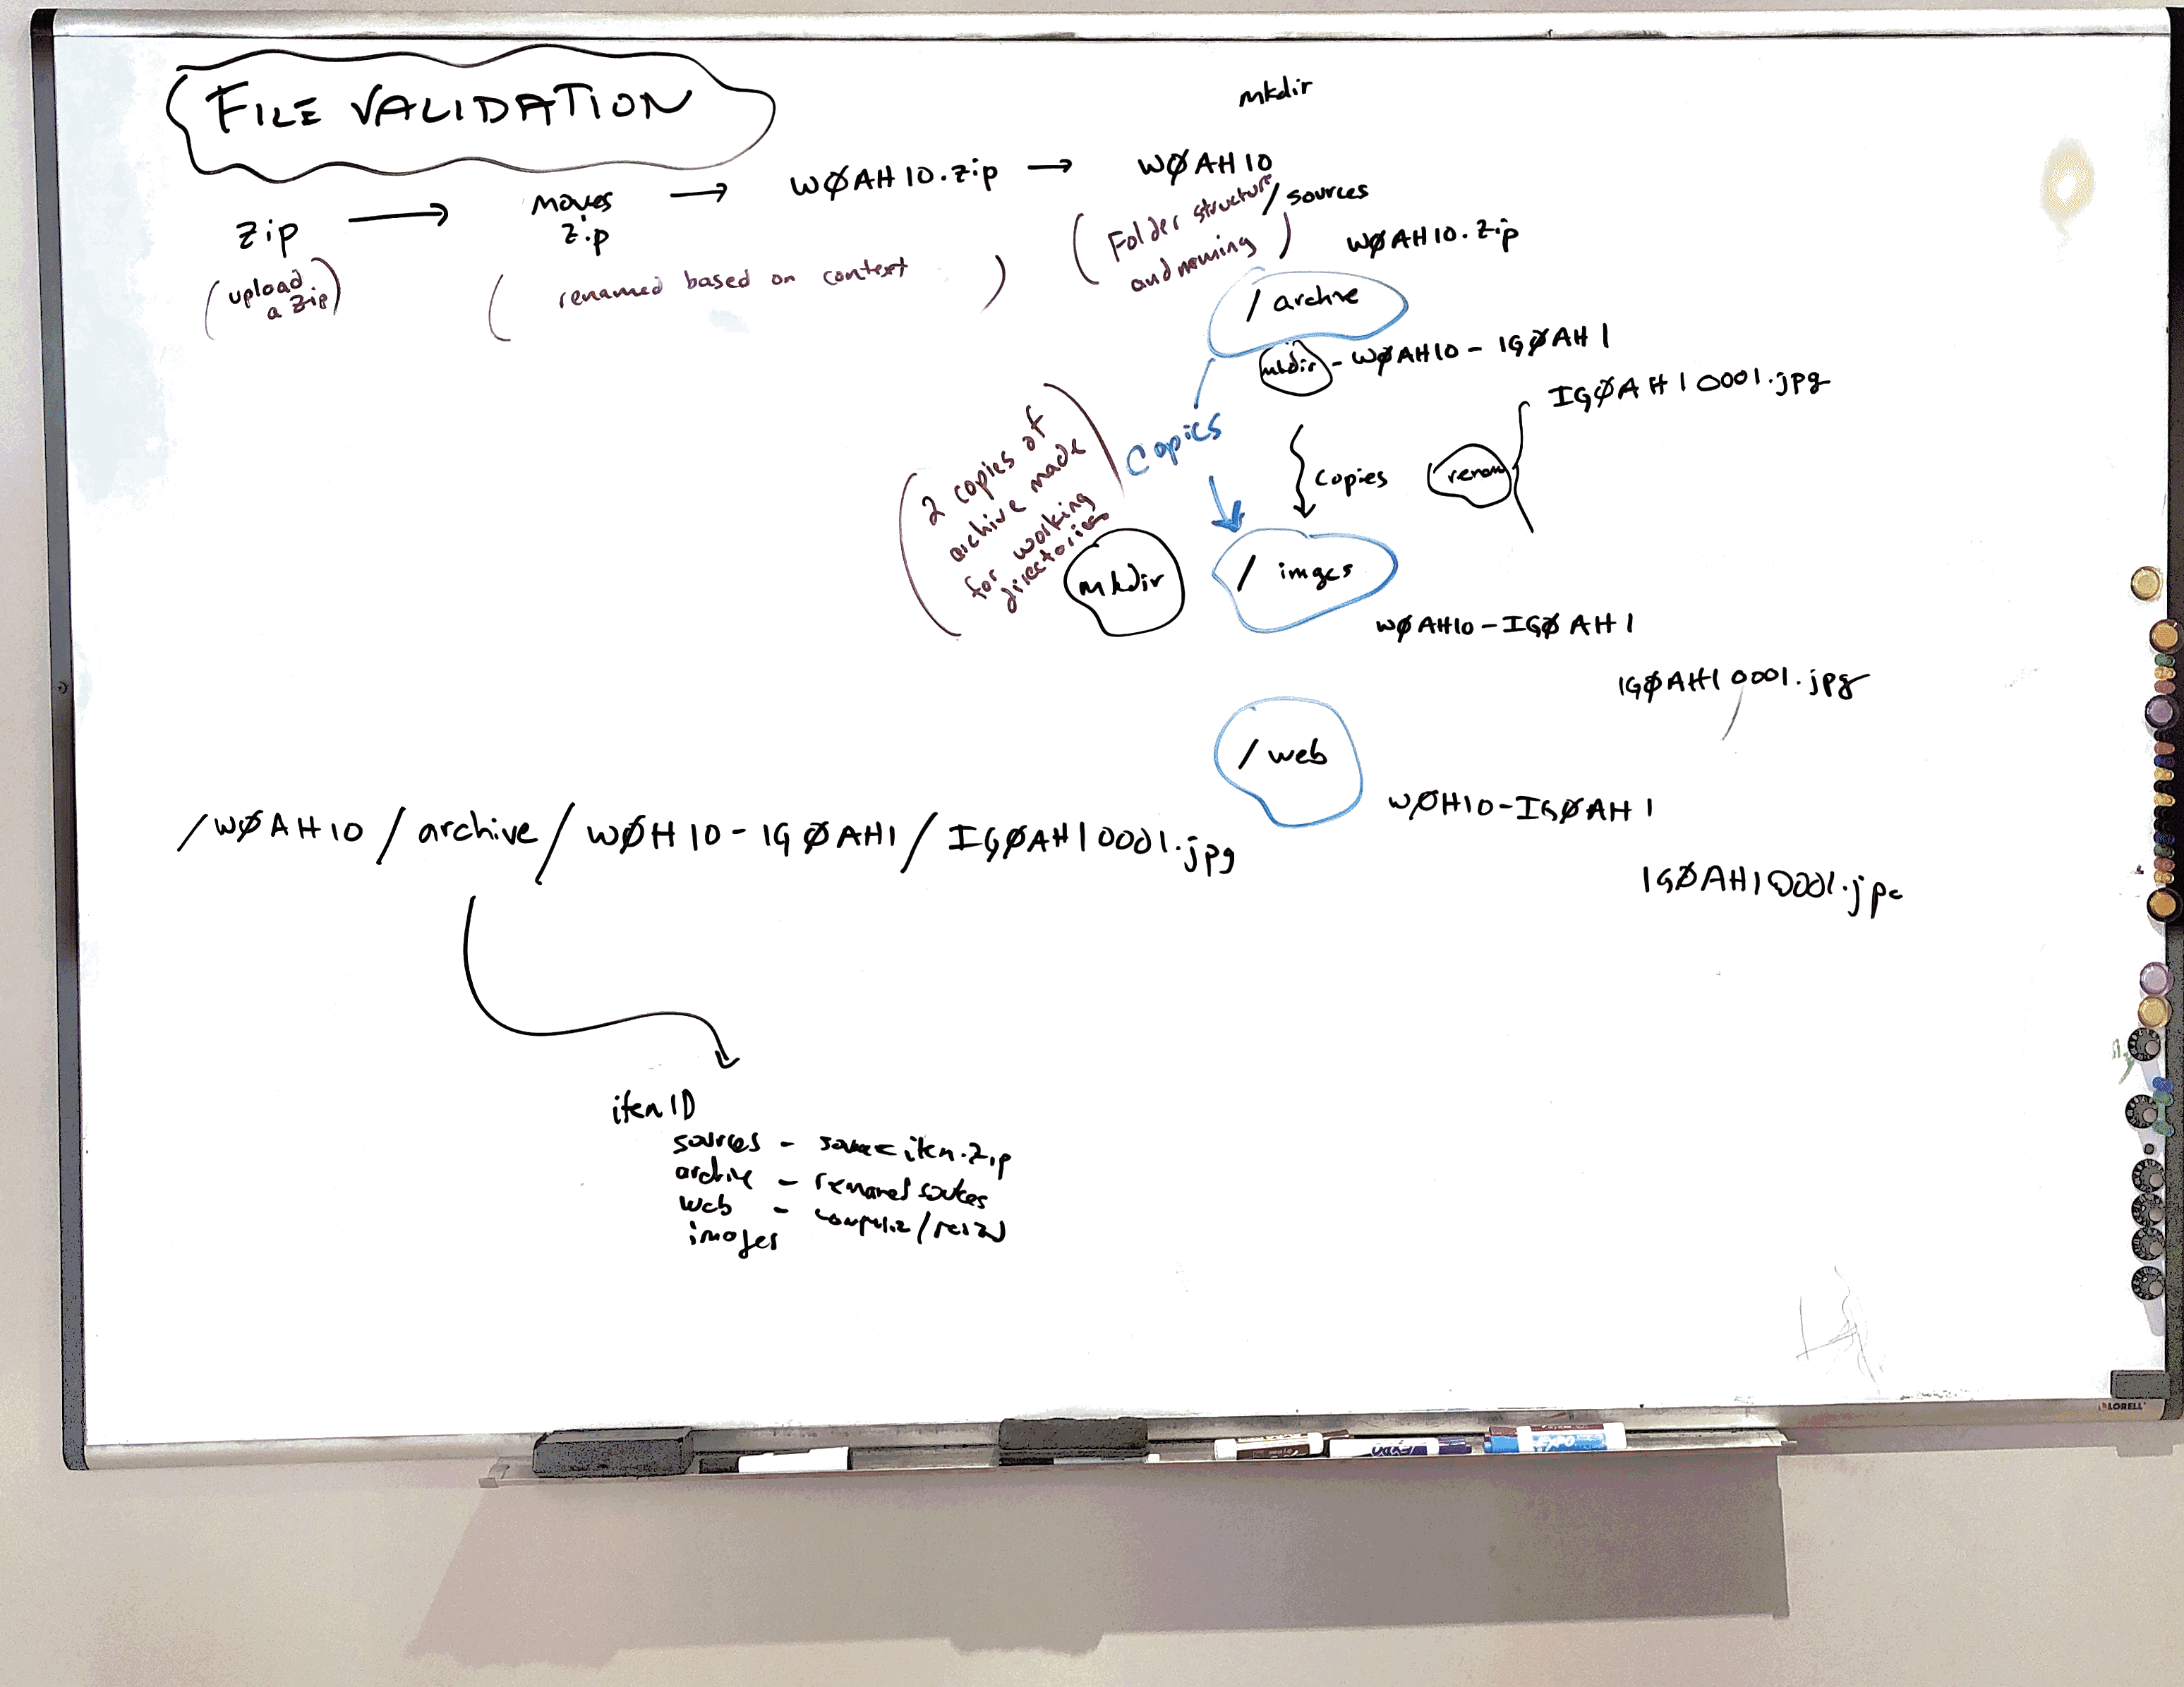 FILE VALIDATION
mkdir
zip → moves zip → WØAH10.zip → WØAH10
(upload a zip)
(renamed based on context)
(Folder structure and naming)
/ sources
WØAH10.zip
/ archive
mkdir - WØAH10 - IGØAH1
IGØAH10001.jpg
renam
Copies
copies
(2 copies of archive made for working directories)
mkdir
/ imges
WØAH10-IGØAH1
IGØAH10001.jpg
/ web
WØH10-IGØAH1
IGØAH10001.jpg
/WØAH10 / archive / WØH10-IGØAH1 / IGØAH10001.jpg
item ID
sources - source item.zip
archive - renamed sources
web -
images
LORELL
EXPO